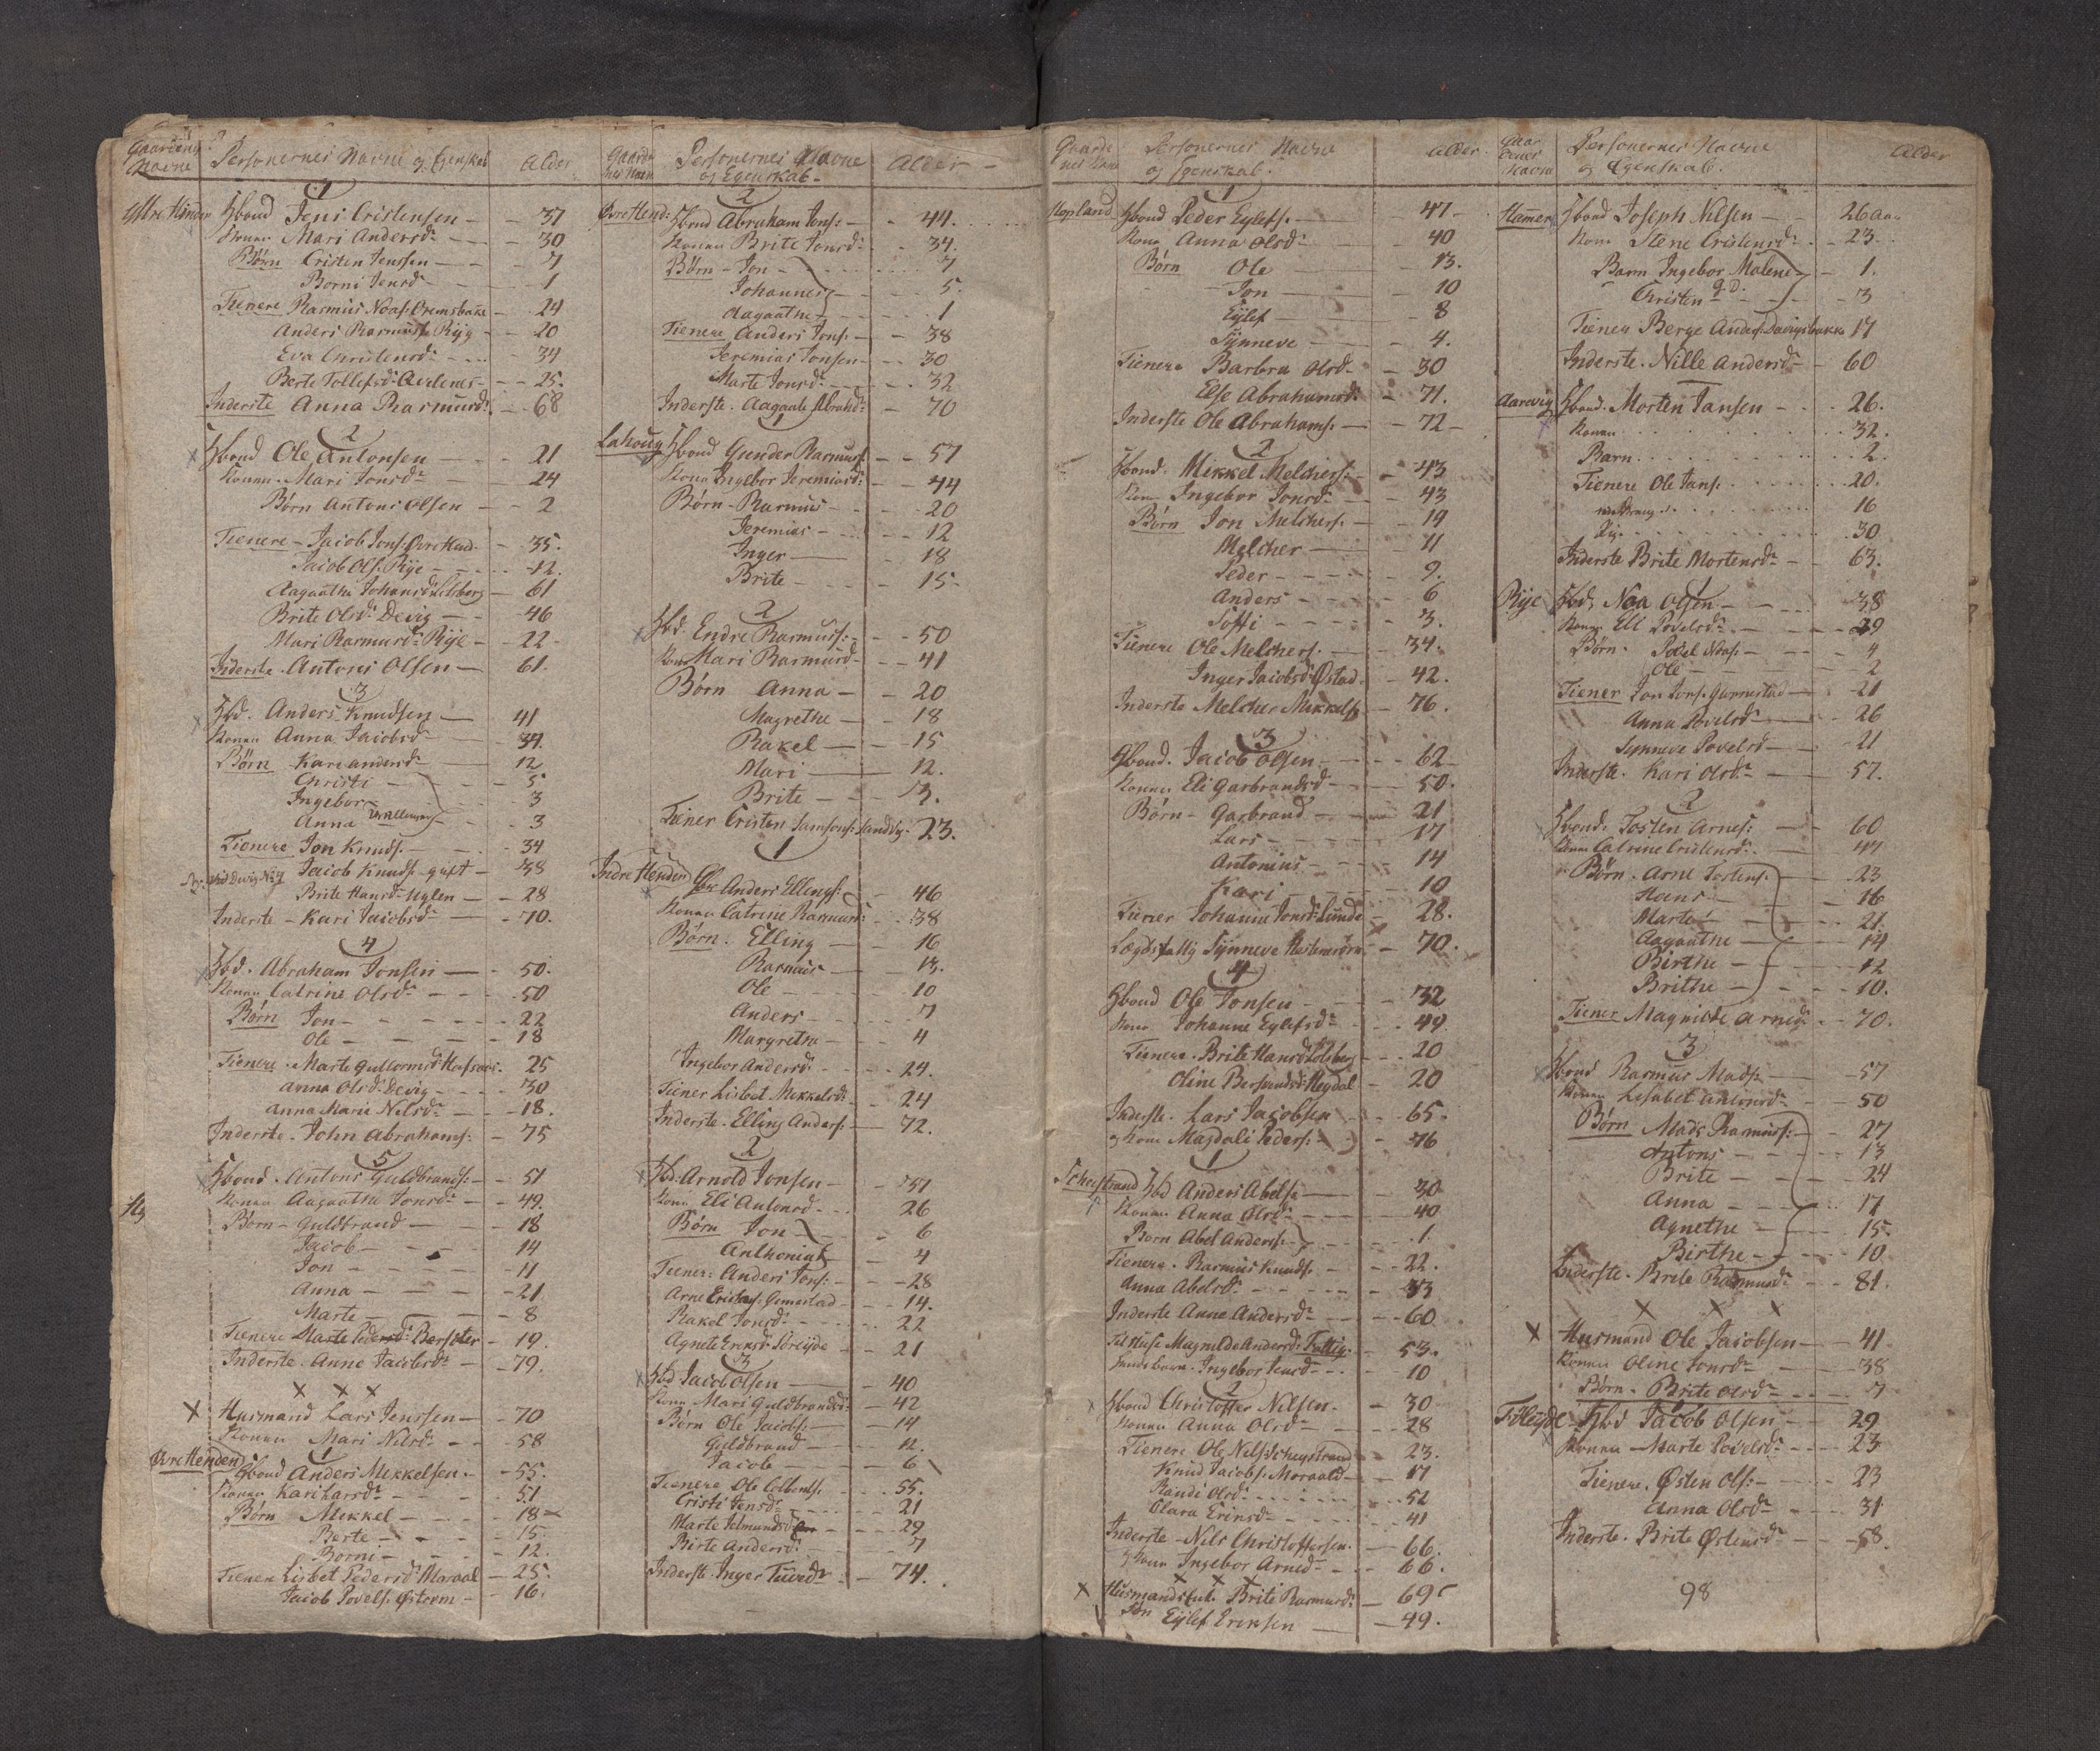 Gaardenes Navne
Personernes Navne og Egenskab
Alder
1
Ytre Hinden Hbond Jens Cristensen - 37
Konen Mari Andersdr - 30
Børn Cristen Jenssen - 7
Borni Jensdr - 1
Tienere Rasmus Noas: - 24
Anders Rasmuss: Ryg - 20
Eva Christensdr - 34
Berte Tollefsdr - 25.
Inderste Anna Rasmusdr - 68
2
Hbond Ole Antonsen - 21
Konen Mari Jonsdr - 24
Børn Antoni Olsen - 2
Tienere - Jacob Jons: - 35.
Jacob Ols: Rÿe - 12.
Aagaathe Johansdr - 61
Brite Olsdr Devig - 46
Mari Rasmusdr Rÿe - 22
Inderste Antoni Olsen - 61.
3
Hbd. Anders Knudsen - 41
Konen Anna Jacobsdr - 34.
Børn Kari andersdr - 12
Christi - 5
Ingebor - 3
Anna - 3
Tienere Jon Knuds: - 34
Jacob Knuds: gift - 38
Brite Hansdr Uglen - 28
Inderste - Kari Jacobsdr - 70.
4
Hbd. Abraham Jonsen - 50.
Konen Catrine Olsdr - 50
Børn Jon - 22
Ole - 18
Tienere Marte Gullormsdr - 25
Anna Olsdr Devig - 30
Anna Marie Nilsdr - 18.
Inderste. John Abrahams: - 75
5
Hbond Antoni Guldbrands: - 51
Konen Aagaathe Jonsdr - 49.
Børn - Guldbrand - 18
Jacob - 14
Jon - 11
Anna - 21
Marte - 8
Tienere Marte Pedersdr - 19.
Inderste. Anne Jacobsdr - 79.
x x x
x Husmand Lars Jenssen - 70
Konen Mari Nilsdr - 58
1
Øvre Henden Hbond Anders Mekkelsen - 55.
Konen Kari Larsdr - 51
Børn Mekkel - 18
Berte - 15
Borni - 12.
Tiener Lisbet Pedersdr Moraal - 25.
Jacob Povels: - 16.
Gaardenes Navn
Personernes Navne og Egenskab
Alder
2
Øvre Hend: Hbond Abraham Jons: - 44.
Konen Brite Jonsdr - 34.
Børn - Jon - 7
Johannes - 5.
Aagaathe - 1
Tienere Anders Jons: - 38
Jeremias Jonsen - 30
Marte Jonsdr - 32
Inderste. Aagaate Abrahdr - 70
1
Lahoug Hbond Gunder Rasmuss: - 57
Kona Ingebor Jeremiasdr - 44
Børn - Rasmus - 20
Jeremias - 12
Inger - 18
Brite - 15
2
Hbd. Endre Rasmuss: - 50
Kona Mari Rasmusdr - 41
Børn Anna - 20
Magrethe - 18
Rakel - 15
Mari - 12.
Brite - 3.
Tiener Cristen Samsons: Sandvig - 23.
1
Indre Henden Hbd Anders Ellings: - 46
Konen Catrine Rasmusdr - 38
Børn. Elling - 16
Rasmus - 13.
Ole - 10
Anders - 7
Margrethe - 4
Ingebor Andersdr - 24.
Tiener Lisbet Mekkelsdr - 24
Inderste. Elling Anders: - 72.
2
Hbd Arnold Jonsen - 37
Kona Eli Antonsdr - 26
Børn Jon - 6
Anthonia - 4
Tienere: Anders Jons: - 28
Arne Eriks: - 14.
Rakel Jonsdr - 22
Agnete Ericsdr - 21
3
Hbd Jacob Olsen - 40
Kona Mari Guldbrandsdr - 42
Børn Ole Jacobs: - 14
Guldbrand - 12.
Jacob - 6
Tienere Ole - 55.
Cristi Jensdr - 21
Marte - 29
Birte Andersdr - 7
Inderste Inger - 74.
Gaardenes Navn
Personernes Navne og Egenskab.
Alder.
1
Hopland Hbond Peder Eylefs: - 47
Kona Anna Olsdr - 40
Børn Ole - 13.
Jon - 10
Eylef - 8
Synneve - 4.
Tienere Barbra Olsdr - 30
Else Abrahamsdr - 71.
Inderste Ole Abrahams: - 72
2
Hbond. Mikkel Melchers: - 43
Kona Ingebor Jonsdr - 43
Børn Jon Melchers: - 14
Melcher - 11
Peder - 9.
Anders - 6
Soffi - 3.
Tienere Ole Melchers: - 34.
Inger Jacobsdr Østad - 42.
Inderste Melcher Mekkels: - 76.
3
Hbond. Jacob Olsen - 62
Konen Eli Garbrandsdr - 50.
Børn - Garbrand - 21
Lars - 17
Antonius - 14
Kari - 10
Tiener Johanne Jonsdr Lunde - 28.
Lægdsfattig Synneve - 70.
4
Hbond Ole Jonsen - 32
Kona Johanne Eylefsdr - 49.
Tienere. Brite Hansdr - 20
Oline - 20
Inderste. Lars Jacobsen - 65.
og Kone Magdali Peders: - 76
1
Hbd Anders Abels: - 30
Konen Anna Olsdr - 40
Børn Abel Anders: - 1.
Tienere. Rasmus Knuds: - 22.
Anna Abelsdr - 33
Inderste Anne Andersdr - 60
Magnilde Andersdr Fattig - 53.
Ingebor Jensdr - 10
2
Hbond Christoffer Nilsen - 30
Konen Anna Olsdr - 28
Tienere Ole Nils: - 23.
Knud Jacobs: Moraald - 17
Randi Olsdr - 52
Clara Ericsdr - 41
Inderste - Nils Christoffersen - 66.
Ingebor Arnedr - 66.
x x x
x Husmands Brite Rasmusdr - 69
Søn Eylef Ericksen - 49.
Gaardenes Navne
Personernes Navne og Egenskab.
Alder
Hamer Hbond Joseph Nilsen - 26 aar
Kone Stene Cristensdr - 23
Barn Ingebor Malene - 1.
Christen - 3
Tiener Berge Anders: - 17
Inderste. Nille Andersdr - 60
Aarevig Hbond. Morten Jansen - 26.
Konen - 32.
Barn - 2.
Tienere Ole Jans: - 20.
16
30
Inderste Brite Mortensdr - 63.
1
Rÿe Hbd. Noa Olsen - 38
Konen Ell Povelsdr - 29
Børn. Povel Noas: - 4
Ole - 2
Tiener Jon Jons: - 21
Anna Povelsdr - 26
Synneve Povelsdr - 21
Inderste. Kari Olsdr - 57.
2
Hbond. Tosten Arnes: - 60
Konen Catrine Cristensdr - 47
Børn. Arne Tostens: - 23
Hans - 16
Marte - 21.
Aagaathe - 14
Birthe - 12
Brithe - 10.
Tiener Magnilde Arnedr - 70.
3
Hbond Rasmus Mads: - 57
Konen Lisabet Antonsdr - 50
Børn Mads Rasmuss: - 27
Antons - 13
Brite - 24
Anna - 17
Agnethe - 15.
Birthe - 10
Inderste. Brite Rasmusdr - 81.
x x x
x Husmand Ole Jacobsen - 41
Konen Oline Jonsdr - 38
Børn. Brite Olsdr - 7
Hbd Jacob Olsen - 29
Konen Marte Povelsdr - 23
Tienere. Østen Ols: - 23
Anna Olsdr - 31
Inderste. Brite Østensdr - 58.
98